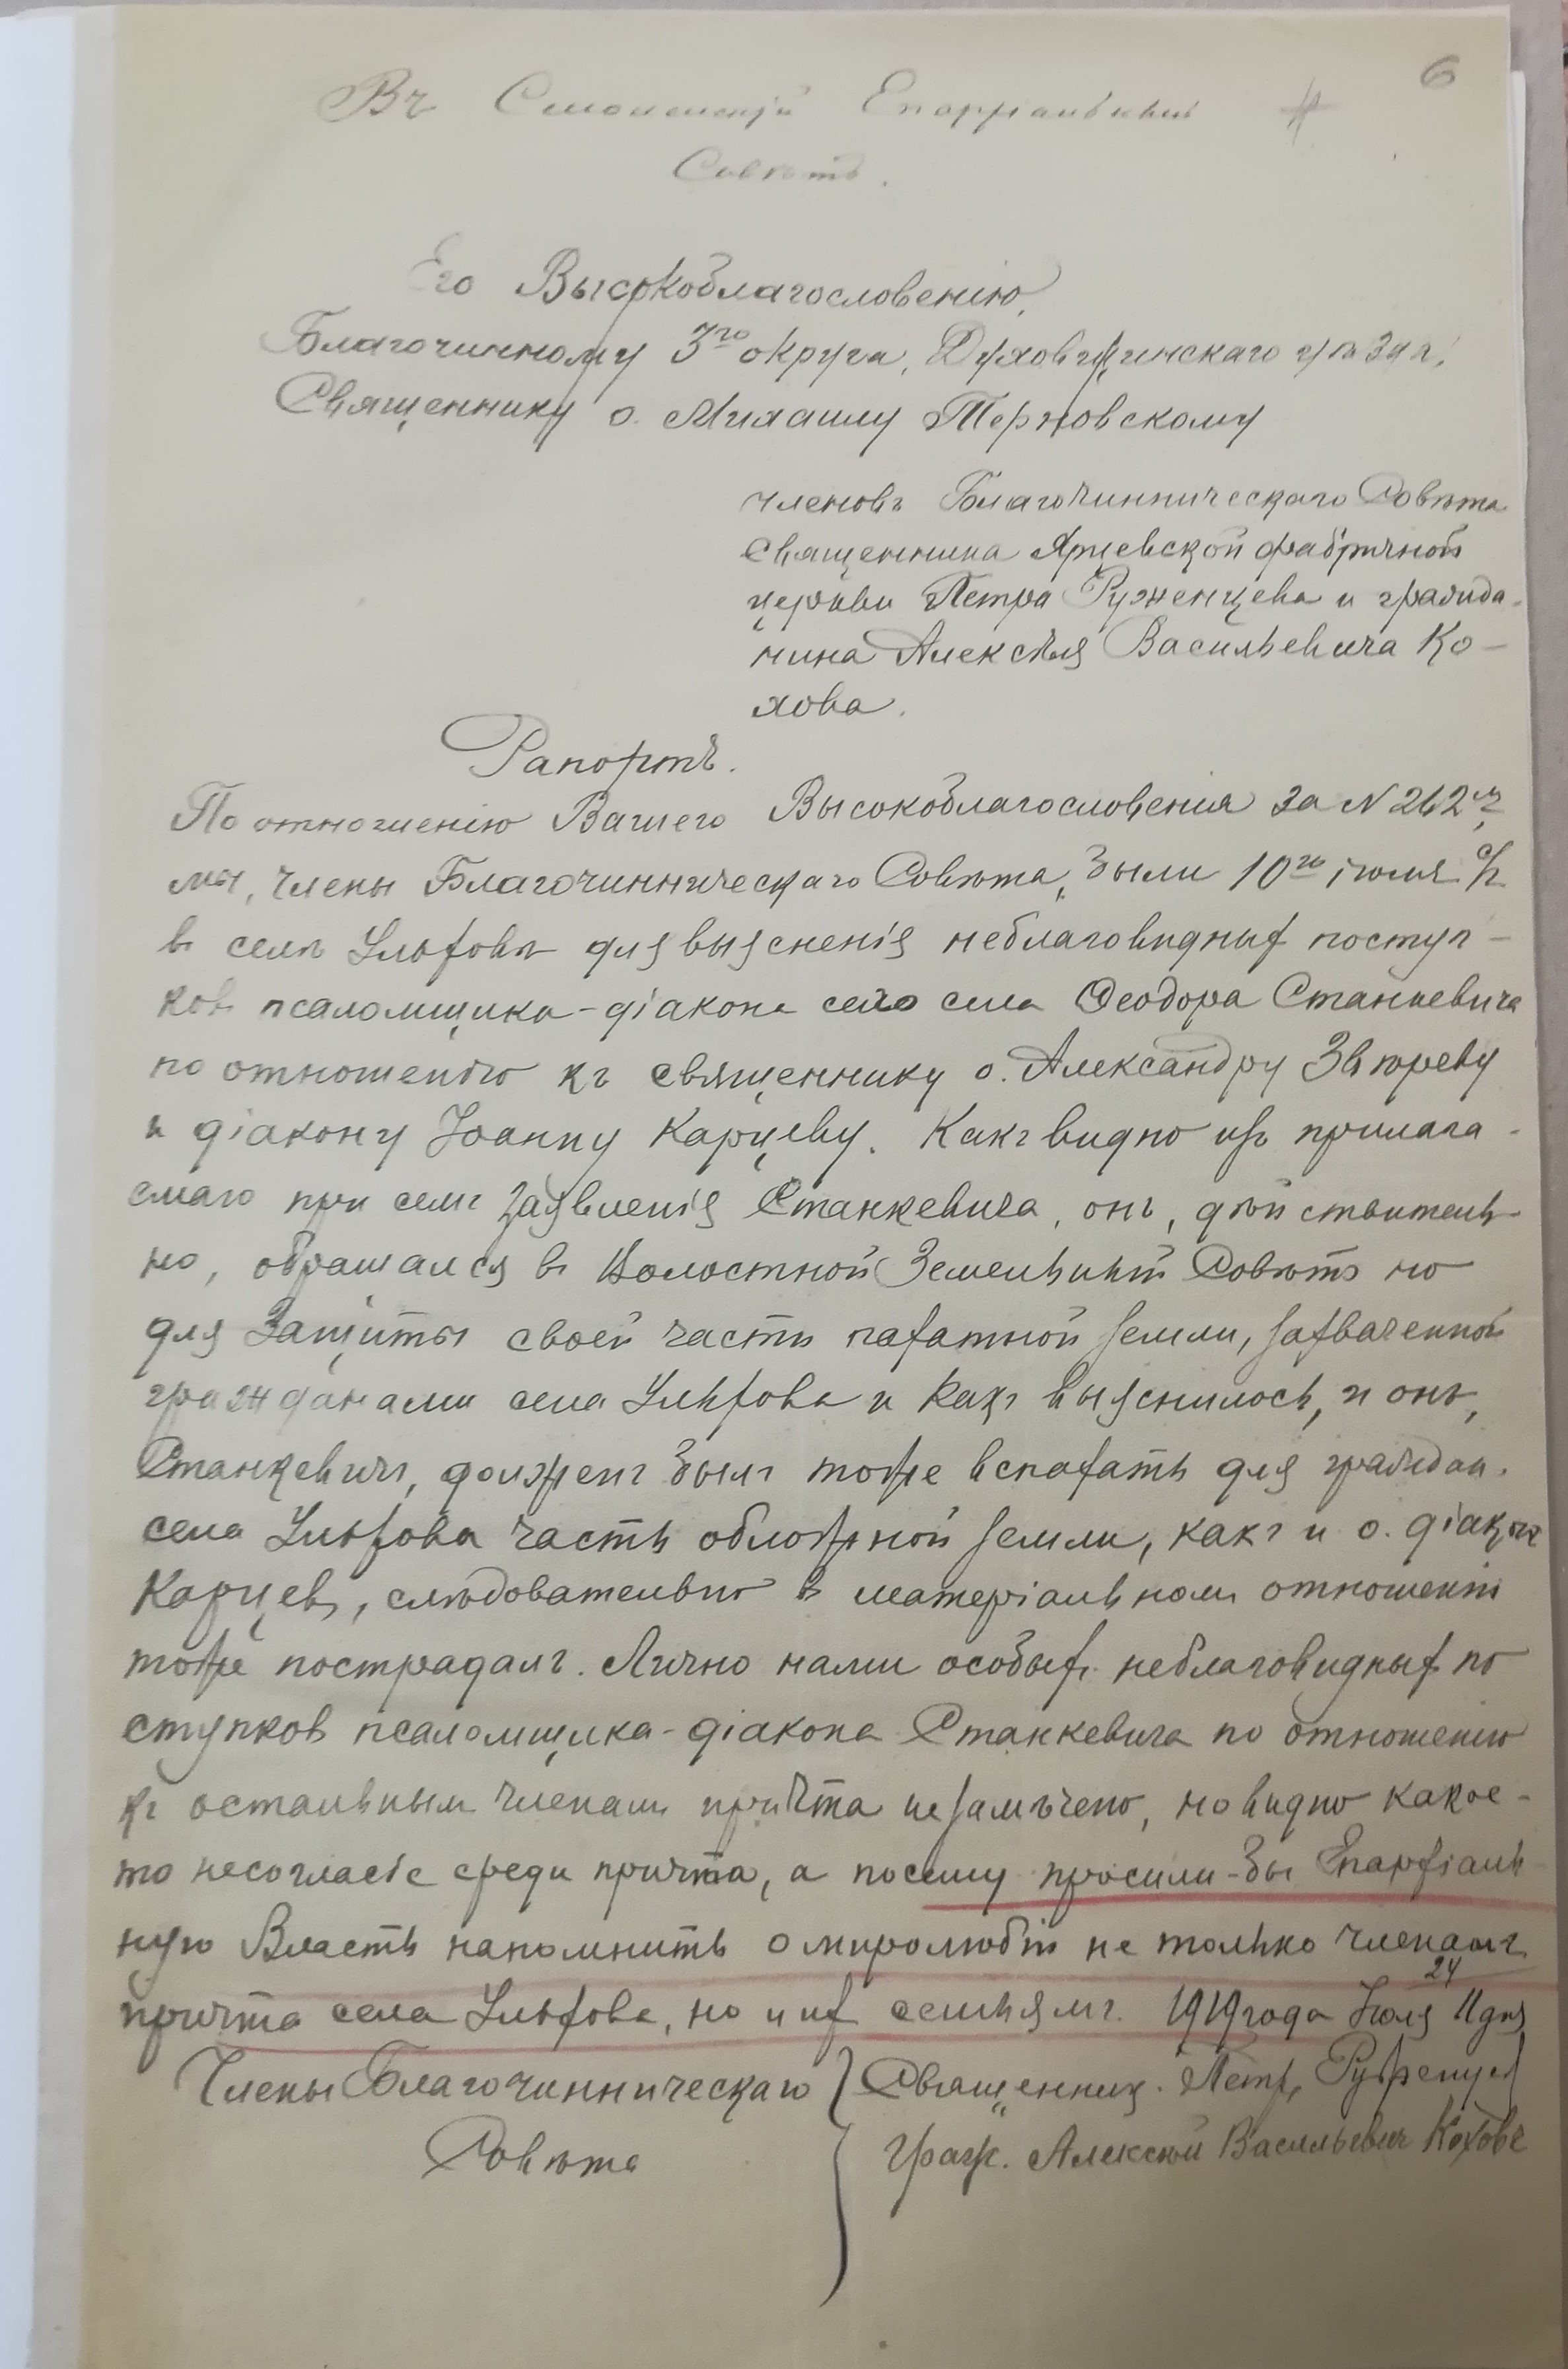 6
Въ Смоленскiй Епархiальный
Совѣтъ.
Его Высокоблагословенію,
Благочинному 3го округа, Духовщинскаго уѣзда,
Священнику о. Михаилу Терновскому
членовъ Благочинническаго Совѣта
Священника Ярцевской фабричной
церкви Петра Руженцева и гражда-
нина Алексѣя Васильевича Ко-
хова.
Рапортъ.
По отношенію Вашего Высокоблагословенія за N 262мъ
мы, члены Благочинническаго Совѣта, были 10го іюля с/г
въ селѣ Ульховѣ для выясненія неблаговидныхъ поступ-
ковъ псаломщика-діакона сего села Ѳеодора Станкевича
по отношенію къ священнику о. Александру Звѣреву
и діакону Іоанну Карцеву. Какъ видно изъ прилага-
емаго при семъ заявленія Станкевича, онъ, дѣйствитель-
но, обращался въ Волостной Земельный Совѣтъ но
для защиты своей части пахатной земли, захваченной
гражданами села Ульхова и какъ выяснилось, и онъ,
Станкевичъ, долженъ былъ тоже вспахать для граждан.
села Ульхова часть обложной земли, какъ и о. діаконъ
Карцевъ, слѣдовательно въ матеріальномъ отношеніи
тоже пострадалъ. Лично нами особыхъ неблаговидныхъ по
ступковъ псаломщика-діакона Станкевича по отношенію
къ остальнымъ членамъ причта незамѣчено, но видно какое-
то несогласіе среди причта, а посему просили-бы Епархіаль-
ную Власть напомнить о миролюбіи не только членамъ
причта села Ульхова, но и ихъ семьямъ. 1919 года Іюля 24 11 дня
Члены Благочинническаго Священник. Петръ Руженцев
Совѣта Граж. Алексѣй Васильевичъ Коховъ